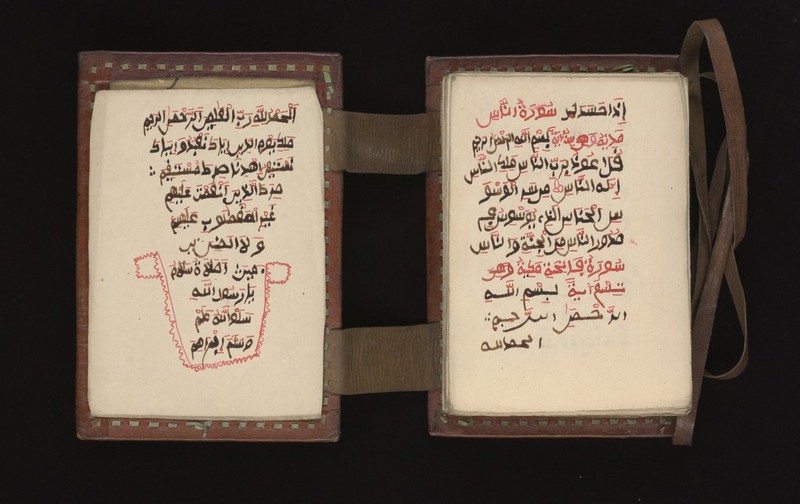 إذا حسد سورة الناس
مدنية وهي آية بسم الله الرحمن الرحيم
قل عوذ برب الناس ملك الناس
إله الناس من شر الوسو
س الخناس الذي يوسوس في
صدور الناس من الجنة والناس
سورة فاتحة مكية وهي
آية بسم الله
الرحمن الرحيم
الحمد لله
الحمد لله رب العلمين الرحمن الرحيم
ملك يوم الدين إياك نعبد وإياك
نستعين اهدنا صرط مستقيم
صرط الذين أنعمت عليهم
غير المغضوب عليهم
ولا الضلين
سلام
يا رسول الله
صلى الله علم
وسلم إبراهم